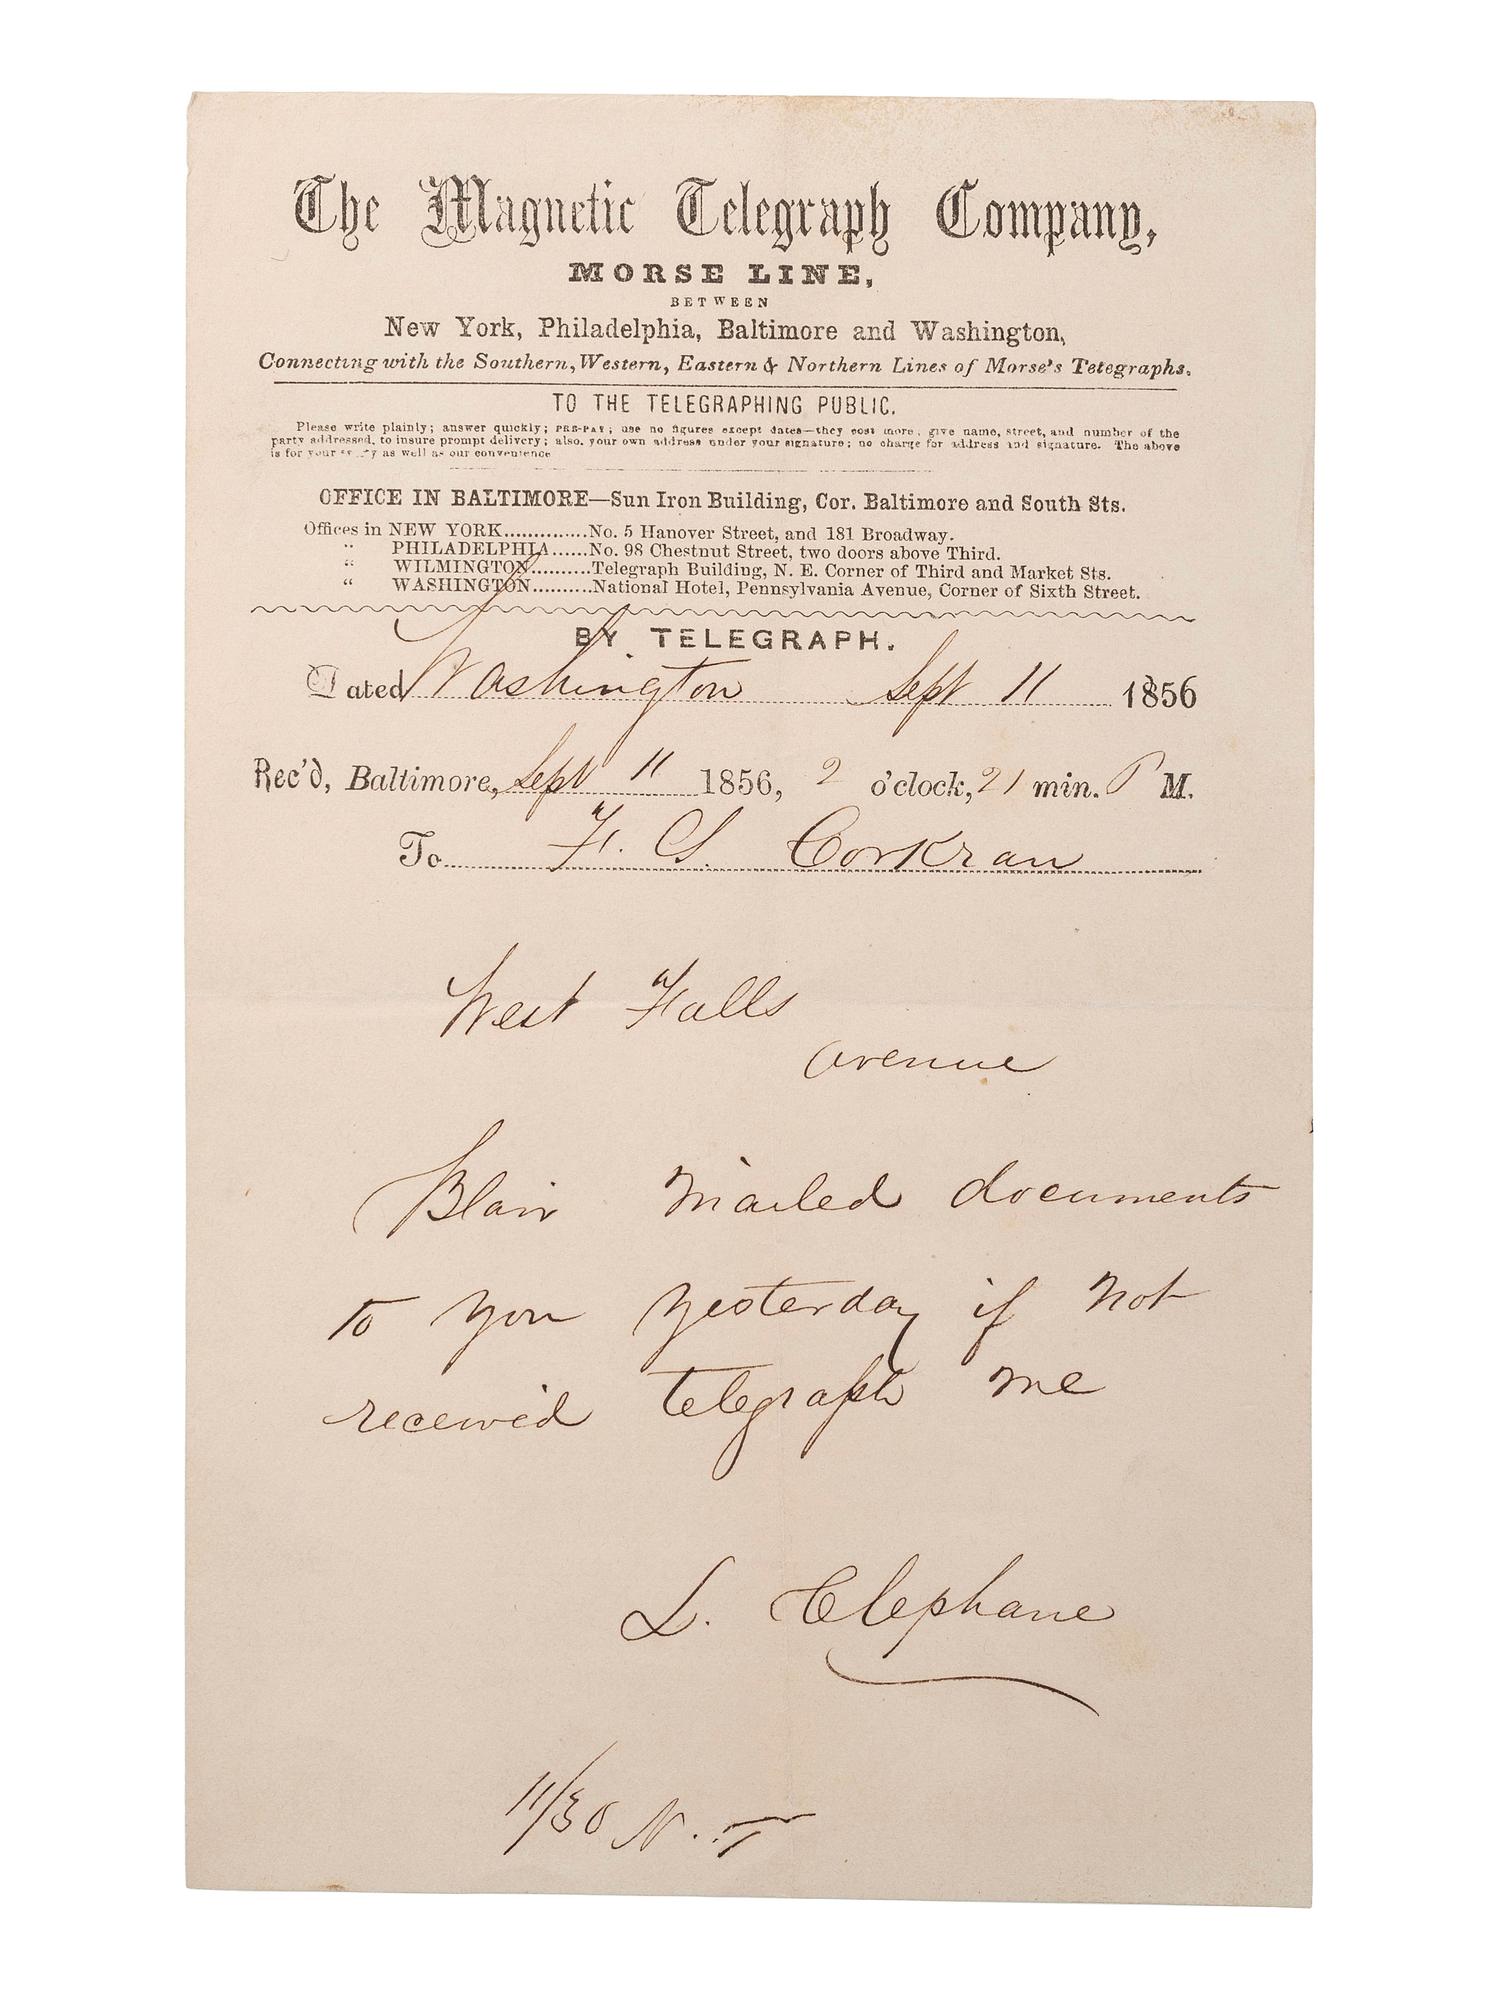 The Magnetic Telegraph Company,
MORSE LINE,
BETWEEN
New York, Philadelphia, Baltimore and Washington,
Connecting with the Southern, Western, Eastern & Northern Lines of Morse's Telegraphs.
TO THE TELEGRAPHING PUBLIC.
Please write plainly; answer quickly; PRE-PAY; use no figures except dates—they cost more; give name, street, and number of the
party addressed, to insure prompt delivery; also, your own address under your signature; no charge for address and signature. The above
is for your as well as our convenience
OFFICE IN BALTIMORE—Sun Iron Building, Cor. Baltimore and South Sts.
Offices in NEW YORK..............No. 5 Hanover Street, and 181 Broadway.
“ PHILADELPHIA......No. 98 Chestnut Street, two doors above Third.
“ WILMINGTON..........Telegraph Building, N. E. Corner of Third and Market Sts.
“ WASHINGTON..........National Hotel, Pennsylvania Avenue, Corner of Sixth Street.
BY TELEGRAPH.
Dated Washington Sept 11 1856
Rec'd, Baltimore, Sept 11 1856, 2 o'clock, 21 min. P M.
To F. S. Corkran
West Falls
avenue
Blair mailed documents
to you yesterday if not
received telegraph me
L. Clephane
11/30 N.